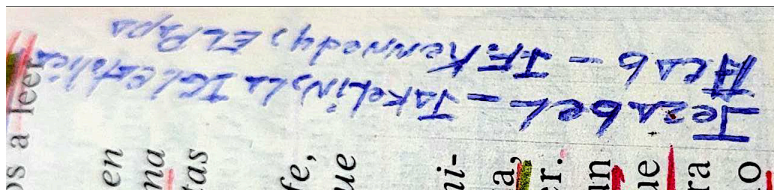 Jezabel - Jakelin, La Igl catolica
Acab - J.F. Kennedy, EL Papa
a leer
en
na
tas
fe,
ue
ni-
a,
er.
un
ue
ra
lo